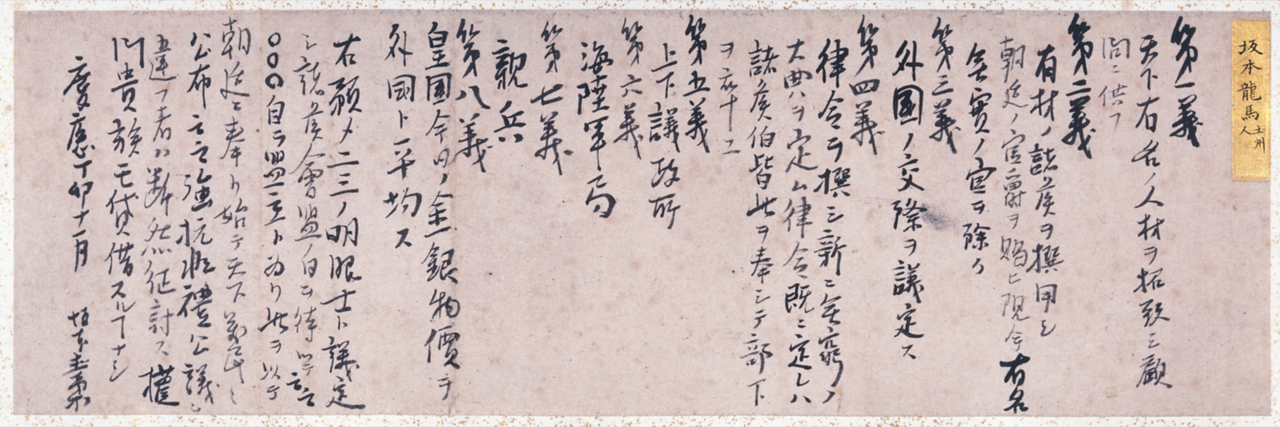 坂本龍馬 土州人
第一義
天下有名ノ人材ヲ招致シ顧
問ニ供フ
第二義
有材ノ諸侯ヲ撰用シ
朝廷ノ官爵ヲ賜ヒ現今有名
無実ノ官ヲ除ク
第三義
外國ノ交際ヲ議定ス
第四義
律令ヲ撰シ新ニ無窮ノ
大典ヲ定ム律令既ニ定レハ
諸侯伯皆此ヲ奉シテ部下
ヲ率ユ
第五義
上下議政所
第六義
海陸軍局
第七義
親兵
第八義
皇國今日ノ金銀物價ヲ
外國ト平均ス
右預メ二三ノ明眼士ト議定
シ諸侯會盟ノ日ヲ待ツテ云云
○○○自ラ盟主ト為リ此ヲ以テ
朝廷ニ奉リ始テ天下萬民ニ
公布云云強抗非禮公議ニ
違フ者ハ断然征討ス權
門貴族モ貸借スルヿナシ
慶應丁卯十一月 坂本直柔